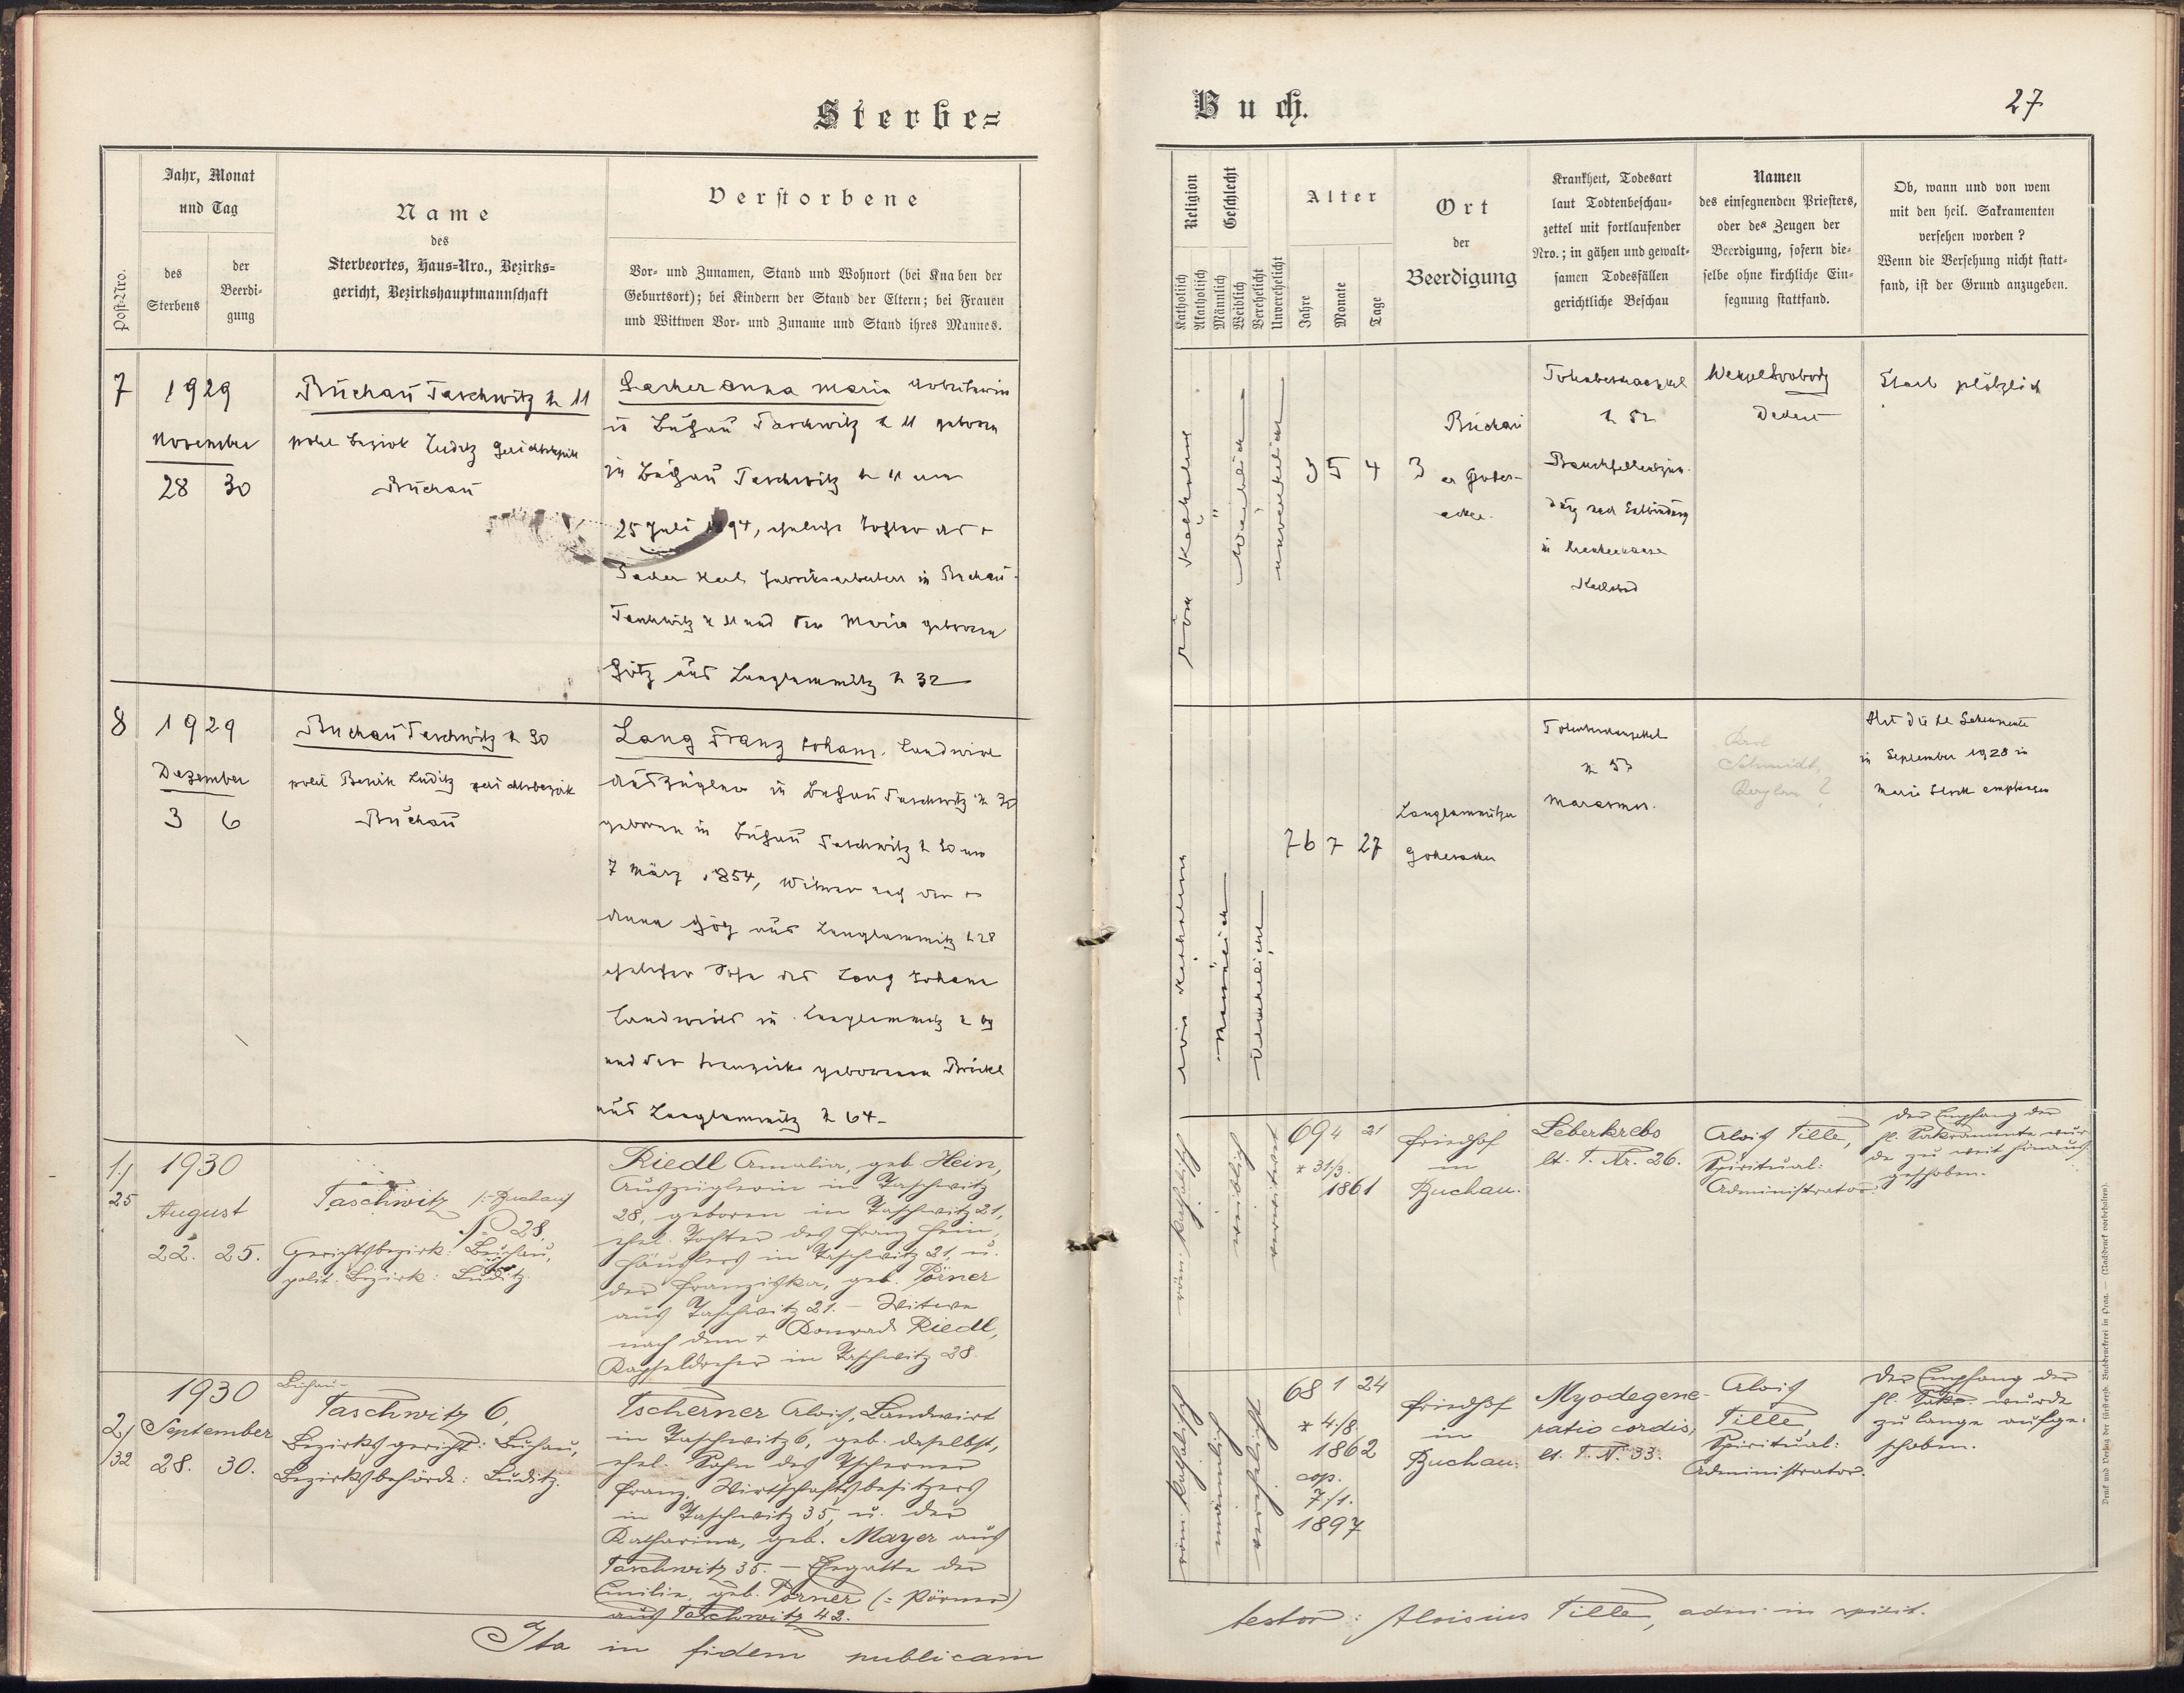 Sterbe=
Post-Nro.
Jahr, Monat
und Tag
des
Sterbens
der
Beerdi-
gung
Name
des
Sterbeortes, Haus-Nro., Bezirks=
gericht, Bezirkshauptmannschaft
Verstorbene
Vor- und Zunamen, Stand und Wohnort (bei Knaben der
Geburtsort); bei Kindern der Stand der Eltern; bei Frauen
und Wittwen Vor- und Zuname und Stand ihres Mannes.
7
1929
November
28 30
Buchau Taschwitz N 11
polit Bezirk Luditz Gerichtsbezirk
Buchau
Anna Maria Arbeiterin
in Buchau Taschwitz N 11 geboren
in Buchau Taschwitz N 11 am
25 Juli 1894, eheliche Tochter des +
Karl Fabriksarbeiters in Buchau-
Taschwitz N 11 und der Maria geborenen
Götz aus Langlammitz N 32
8
1929
Dezember
3 6
Buchau Taschwitz N 30
polit Bezirk Luditz Gerichtsbezirk
Buchau
Lang Franz Johann, Landwirt
Auszügler in Buchau Taschwitz N 30
geboren in Buchau Taschwitz N 30 am
7 März 1854, Witwer nach der +
Anna Götz aus Langlammitz N 28
ehelicher Sohn des Lang Johann
Landwirts in Langlammitz N
und der Franziska geborenen Brückl
aus Langlammitz N 64-
1/
25
1930
August
22. 25.
Taschwitz /:Buchau/
N. 28.
Gerichtsbezirk: Buchau,
polit. Bezirk: Luditz.
Riedl Amalia, geb. Hein,
Auszüglerin in Taschwitz
28, geboren in Taschwitz 21,
ehel. Tochter des Franz Hein,
Häuslers in Taschwitz 21, u.
der Franziska, geb. Pörner
aus Taschwitz 21. – Witwe
nach dem + Konrad Riedl,
Kapseldreher in Taschwitz 28.
2/
/32
1930
September
28. 30.
Buchau-
Taschwitz 6,
Bezirksgericht: Buchau,
Bezirksbehörde: Luditz.
Tscherner Alois, Landwirt
in Taschwitz 6, geb. daselbst,
ehel. Sohn des Tscherner
Franz, Wirtschaftsbesitzers
in Taschwitz 35, u. der
Katharina, geb. Mayer aus
Taschwitz 35. – Ehegatte der
Emilie, geb. Pörner (= Pörner)
aus Taschwitz 42.
Ita in fidem publicam
Buch.
27
Religion
Katholisch
Akatholisch
Geschlecht
Männlich
Weiblich
Verehelicht
Unverehelicht
Alter
Jahre
Monate
Tage
Ort
der
Beerdigung
Krankheit, Todesart
laut Todtenbeschau-
zettel mit fortlaufender
Nro.; in gähen und gewalt-
samen Todesfällen
gerichtliche Beschau
Namen
des einsegnenden Priesters,
oder des Zeugen der
Beerdigung, sofern die-
selbe ohne kirchliche Ein-
segnung stattfand.
Ob, wann und von wem
mit den heil. Sakramenten
versehen worden?
Wenn die Versehung nicht statt-
fand, ist der Grund anzugeben.
röm katholisch
weiblich
unverehelicht
35 4 3
Buchau
er Gottes-
acker.
Totenbeschauzettel
N 52
Bauchfellentzün-
dung nach Entbindung
in Krankenhause
Karlsbad
Wenzel Svoboda
Dechant
Starb plötzlich
röm katholisch
männlich
verehelicht
76 7 27
Langlammitzer
Gottesacker
Totenbeschauzettel
N 53
Marasmus.
Karl
Schmidt,
Kaplan ?
Hat die hl Sakramente
in September 1928 in
Maria Stock empfangen
röm. katholisch
weiblich
verwitwet
69 4 21
* 31/3.
1861
Friedhof
in
Buchau.
Leberkrebs
lt. T. Nr. 26.
Alois Tille,
Spiritual:
Administrator.
Der Empfang der
hl. Sakramente wur-
de zu weit hinaus-
geschoben.
röm. katholisch
männlich
verehelicht
68 1 24
* 4./8.
1862
cop.
7./1.
1897
Friedhof
in
Buchau.
Myodegene-
ratio cordis,
lt. T. N. 33.
Alois
Tille,
Spiritual:
Administrator.
Der Empfang der
hl. Sakr. wurde
zu lange aufge-
schoben.
testor: Aloisius Tille, adm. in spirit.
Druck und Verlag der fürsterzb. Buchdruckerei in Prag. — (Nachdruck vorbehalten).